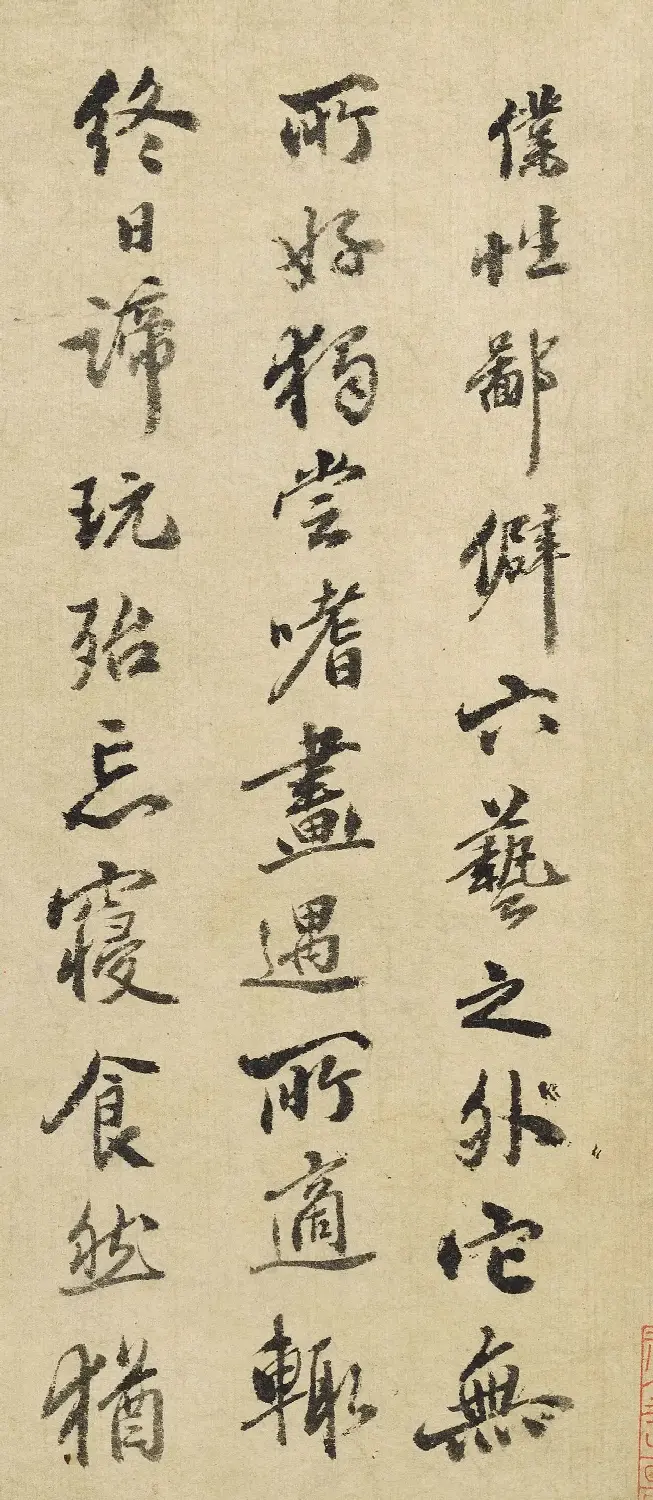 僕性鄙僻六藝之外它無
所好獨嘗嗜畫遇所適輒
終日諦玩殆忘寢食然猶